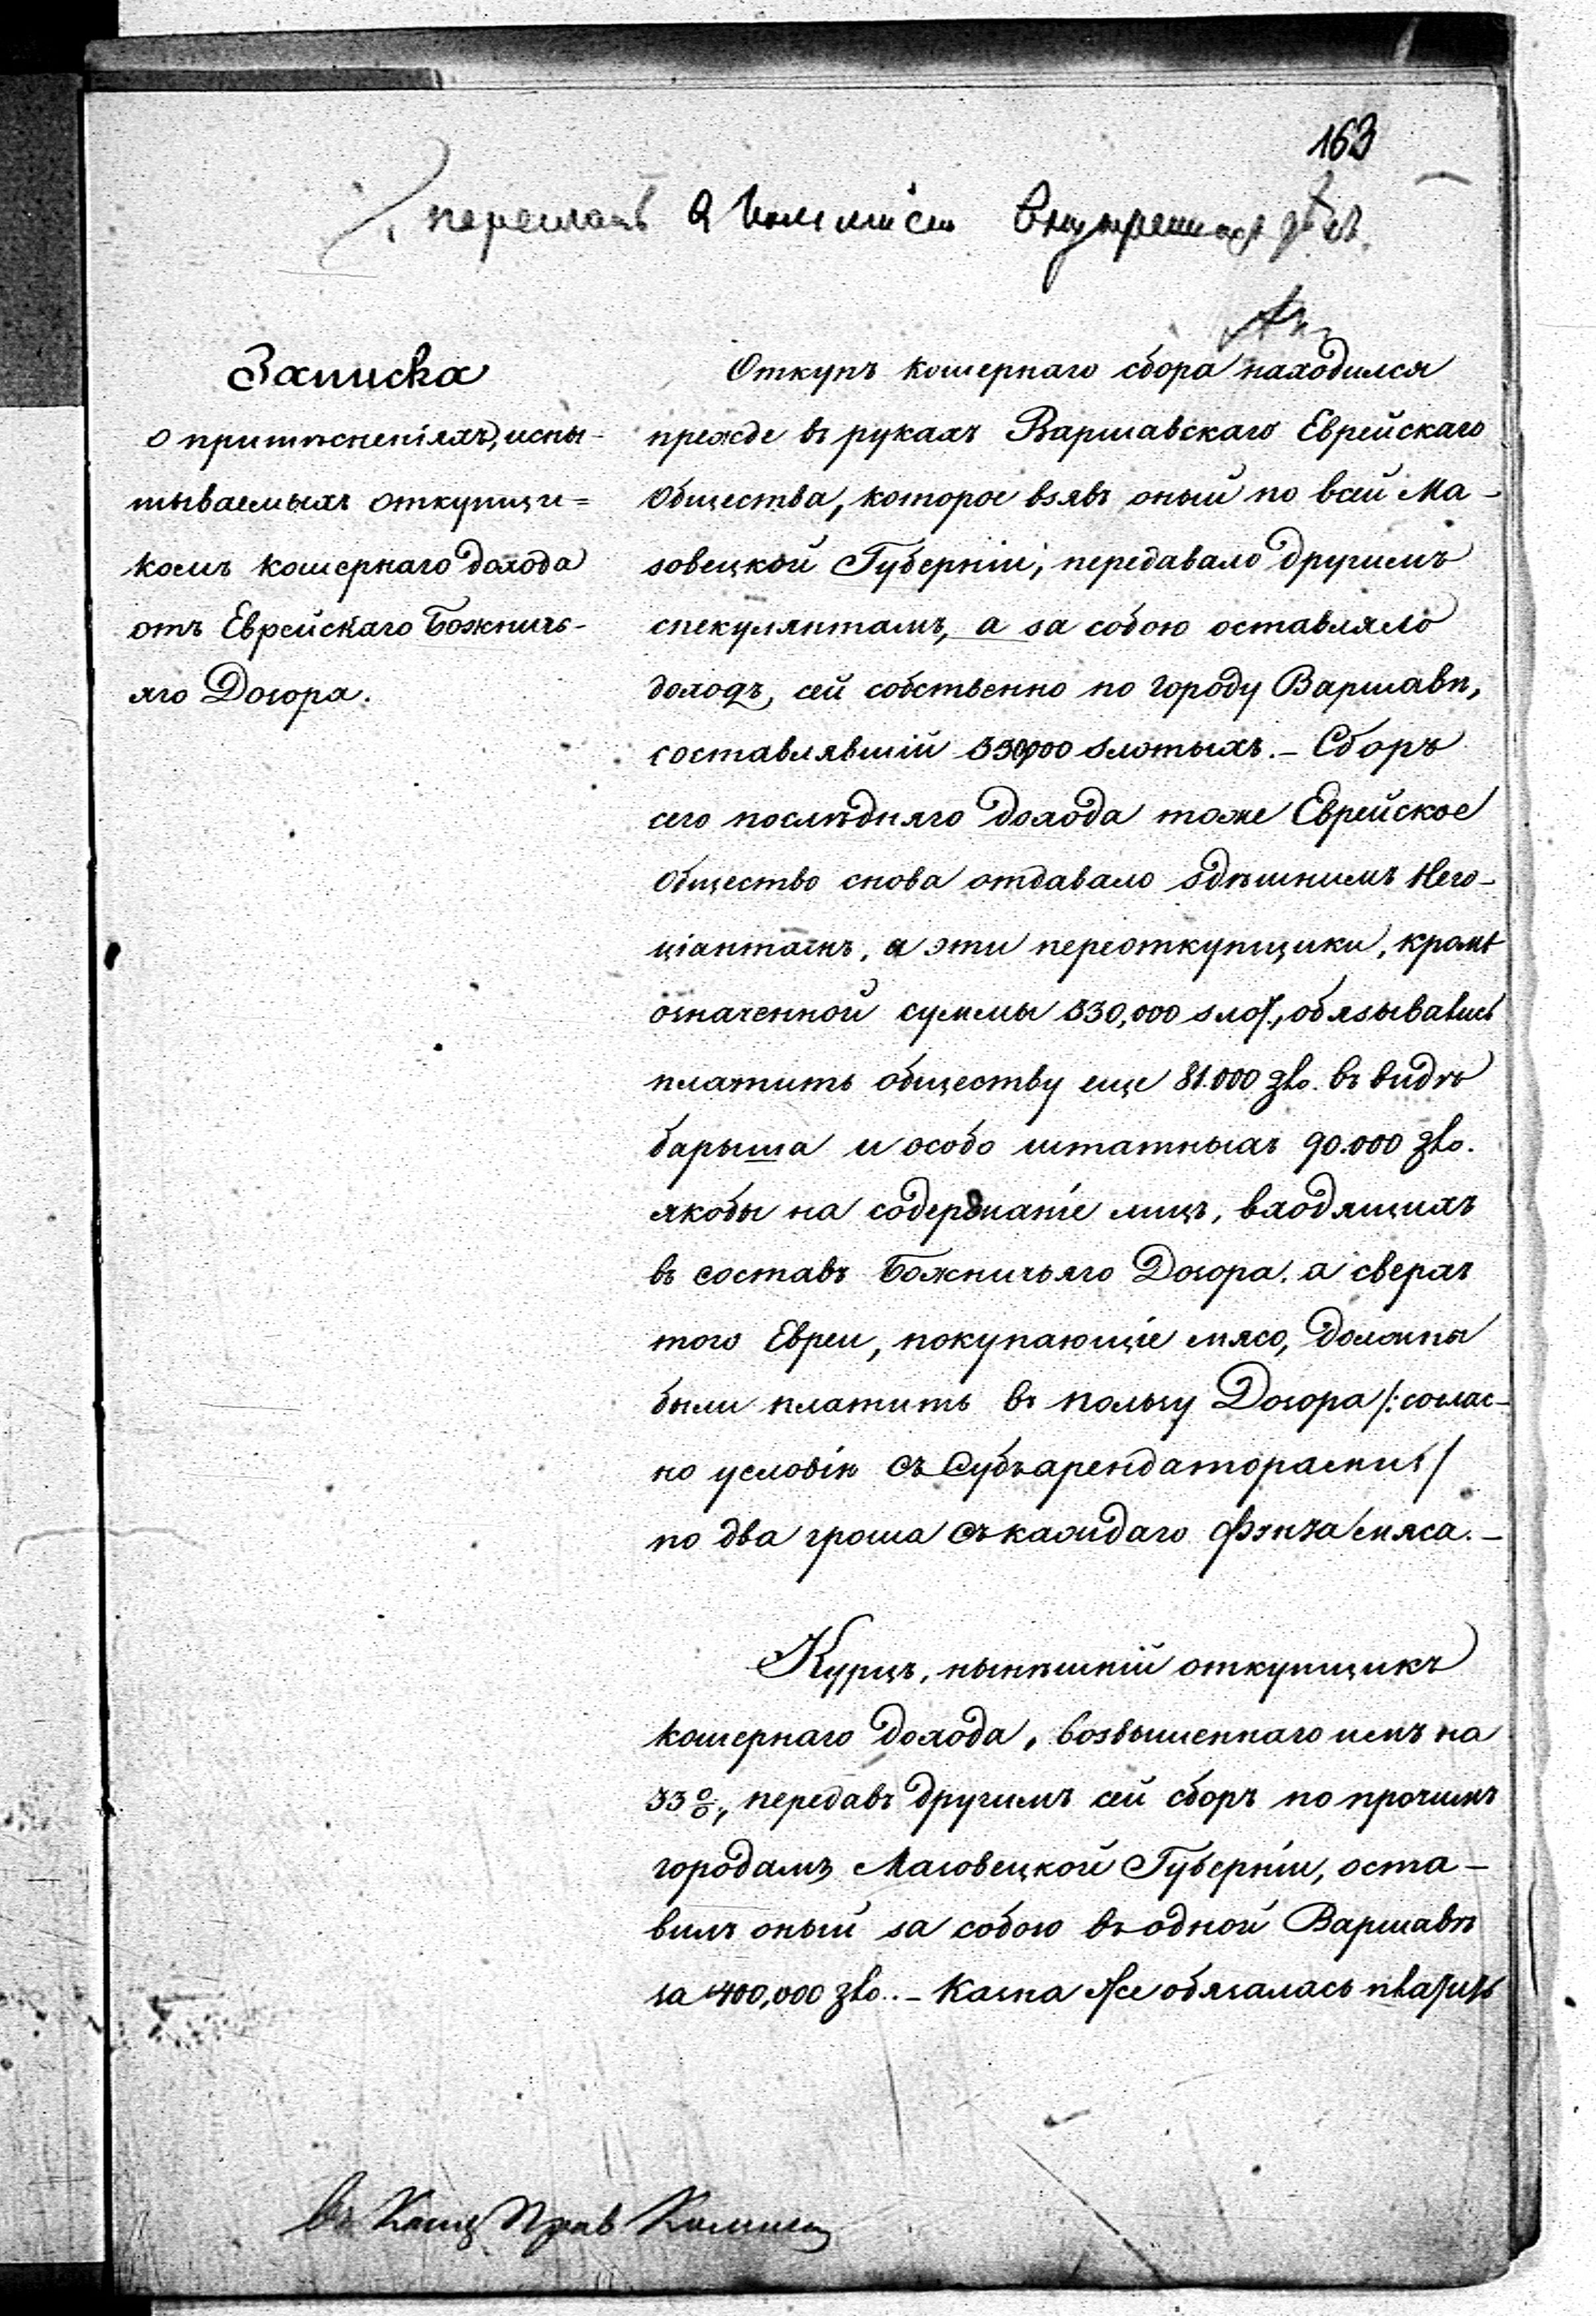 163
переслать въ Коммисію Внутреннихъ дѣлъ.
Записка
о притѣсненіяхъ, испы-
тываемыхъ откупщи=
комъ кошернаго дохода
отъ Еврейскаго Божничь-
яго Дозора.
Откупъ кошернаго сбора находился
прежде въ рукахъ Варшавскаго Еврейскаго
Общества, которое взявъ оный по всей Ма-
зовецкой Губерніи, передавало другимъ
спекулянтамъ, а за собою оставляло
доходъ, сей собственно по городу Варшавѣ,
составлявшій 330,000 злотыхъ. – Сборъ
сего послѣдняго дохода тоже Еврейское
Общество снова отдавало здѣшнимъ Него-
ціантамъ, а эти переоткупщики, кромѣ
означенной суммы 330,000 злот., обязывались
платить обществу еще 81.000 zło. въ видѣ
барыша и особо штатныхъ 90.000 zło.
якобы на содержаніе лицъ, входящихъ
въ составъ Божничьяго Дозора. а сверхъ
того Евреи, покупающіе мясо, должны
были платить въ пользу Дозора /: соглас-
но условію съ Субъарендаторами /
по два гроша съ каждаго фунта мяса. –
Курцъ, нынѣшній откупщикъ
кошернаго дохода, возвышеннаго имъ на
33%, передавъ другимъ сей сборъ по прочимъ
городамъ Мазовецкой Губерніи, оста-
вилъ оный за собою въ одной Варшавѣ
за 400,000 zło.. – Казна же обязалась платить
Въ Канц Прав Коммисіи